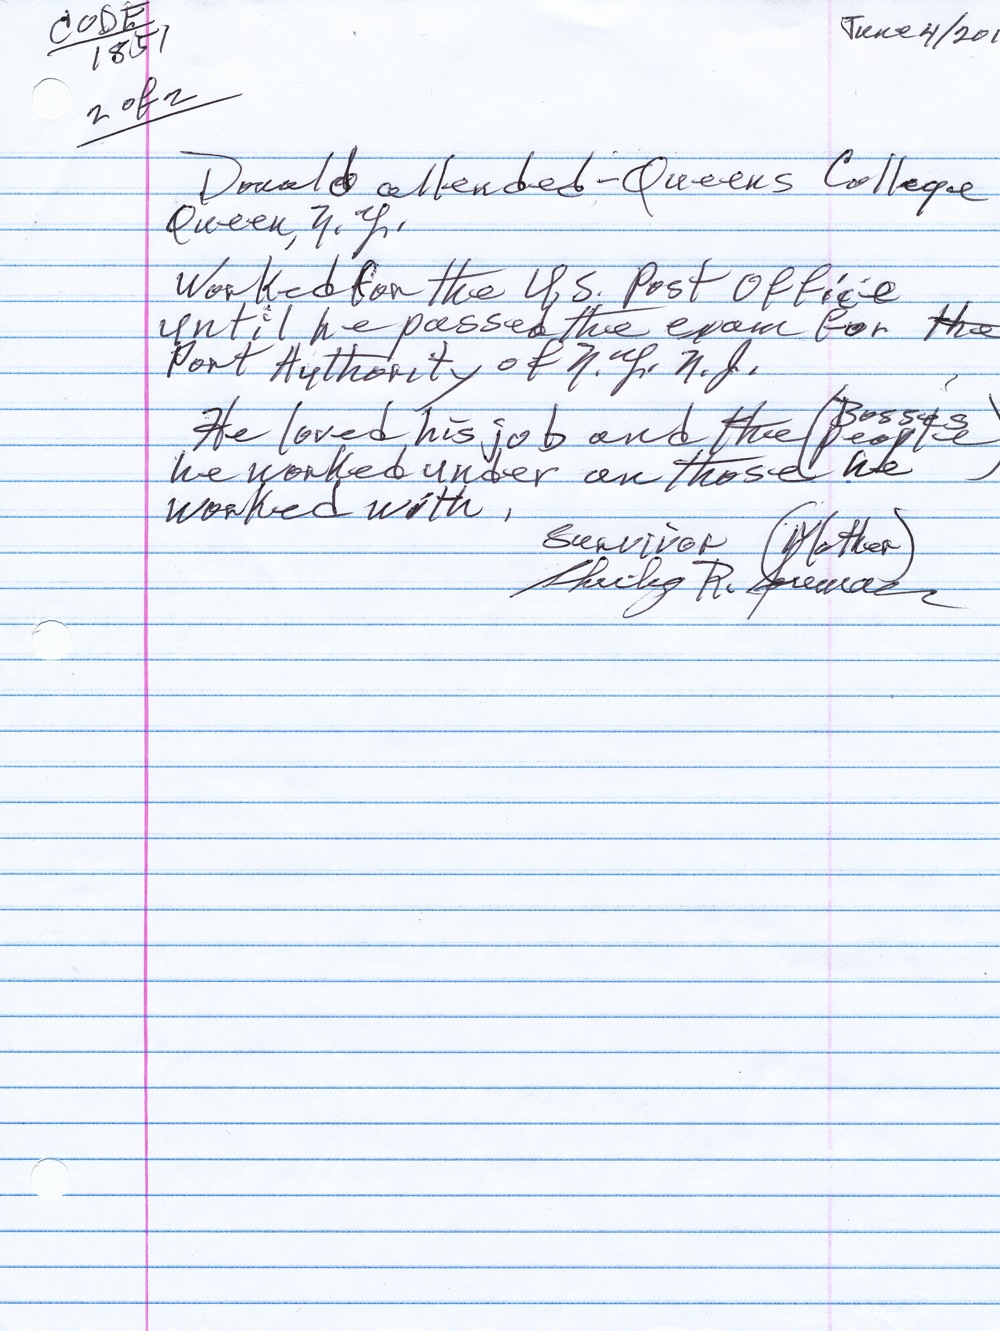 CODE
1851
June 4/201
2 of 2
Donald attended - Queens College
Queen, N.Y.
Worked for the U.S. Post Office
until he passed the exam for the
Port Authority of N.Y. N.J.
He loved his job and the (Bosses
people)
he worked under an those he
worked with.
Survivor (Mother)
R.